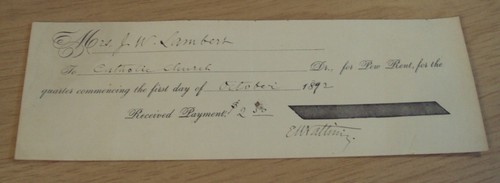 Mrs J. W. Lambert
To Catholic Church Dr., for Pew Rent, for the
quarter commencing the first day of October 1892
Received Payment, $2.50